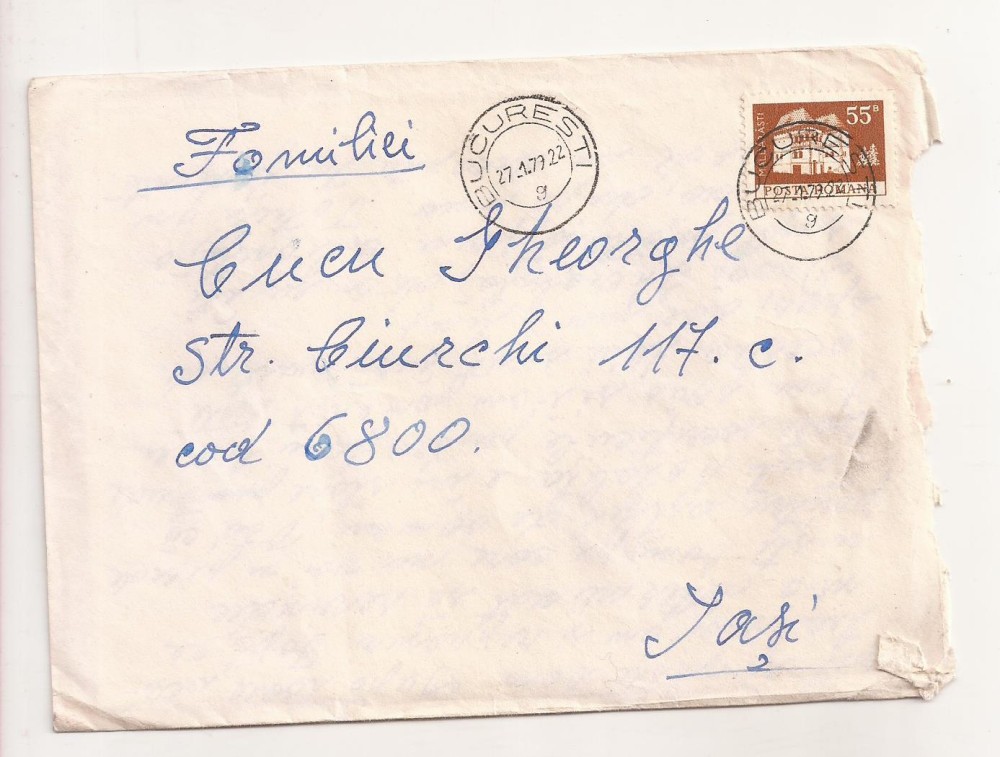 Familiei
BUCURESTI
27.1.79.22
g
55 B
MĂLDĂRĂȘTI
POSTA ROMANA
BUCURESTI
27.1.79.22
g
Cucu Gheorghe
str. Ciurchi 117. c.
cod 6800.
Iași